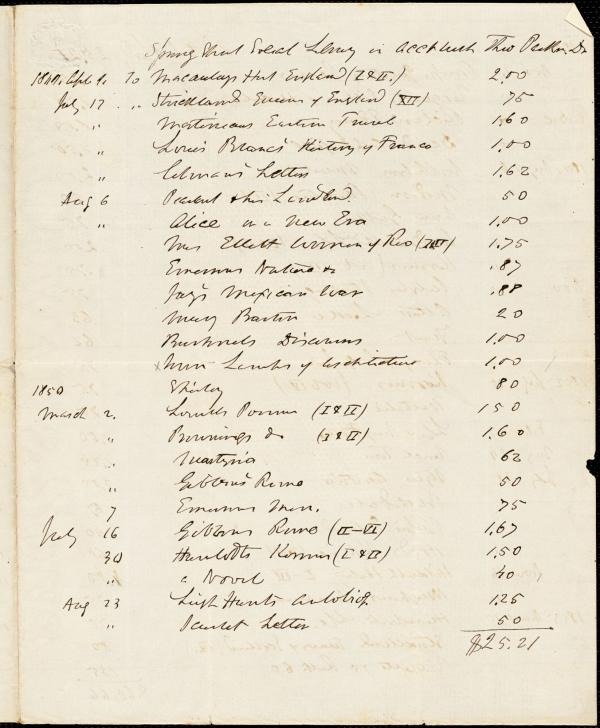 Spring Street Social Library in acct with Theo Parker Dr
1849. Apl 9. To Macaulays Hist England (I & II.) 2.00
July 17 " Stricklands Queens of England (XII) 75
" Martineaus Eastern Travel 1.60
" Louis Blanc's History of France 1.00
" Letters 1.62
Aug 6 Peasant & his Landlord. 50
" Alice in a New Era 1.00
Mrs Ellett Women of Rev 1.75
Emersons Nature &c .87
Jay's Mexican War .88
Mary Barton 20
Bushnels Discourses 1.00
Lamps of Architecture 1.00
1850 Shirley 80
March 2. Lowells Poems (I & II) 150
" Brownings do (I & II) 1.60
" Martyria 62
" Gibbons Rome 50
7 Emersons Men. 75
July 16 Gibbons Rome (II–VI) 1.67
30 Humboldts Kosmos (I & II) 1.50
" a Novel 40
Aug 23 Leigh Hunts autobiog. 1.25
" Scarlet Letter 50
$25.21